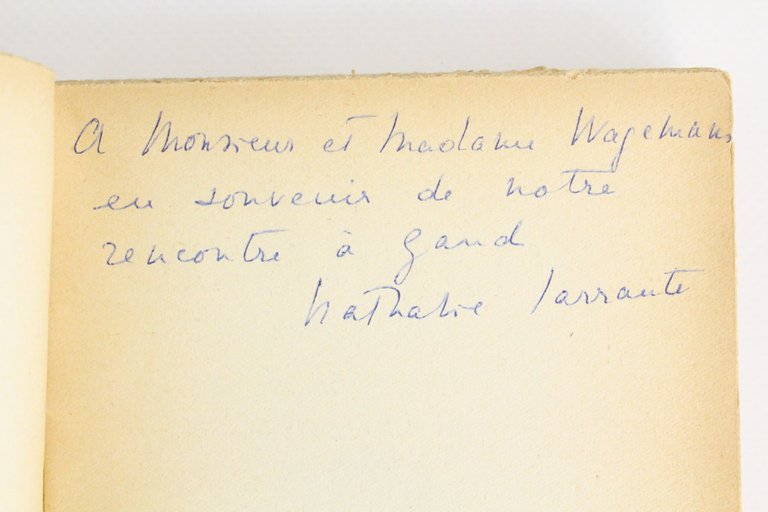 A Monsieur et Madame Wagemans
en souvenir de notre
rencontre à Gand
Nathalie Sarraute